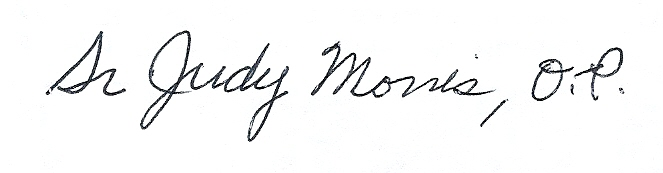 Sr Judy Morris, O.P.